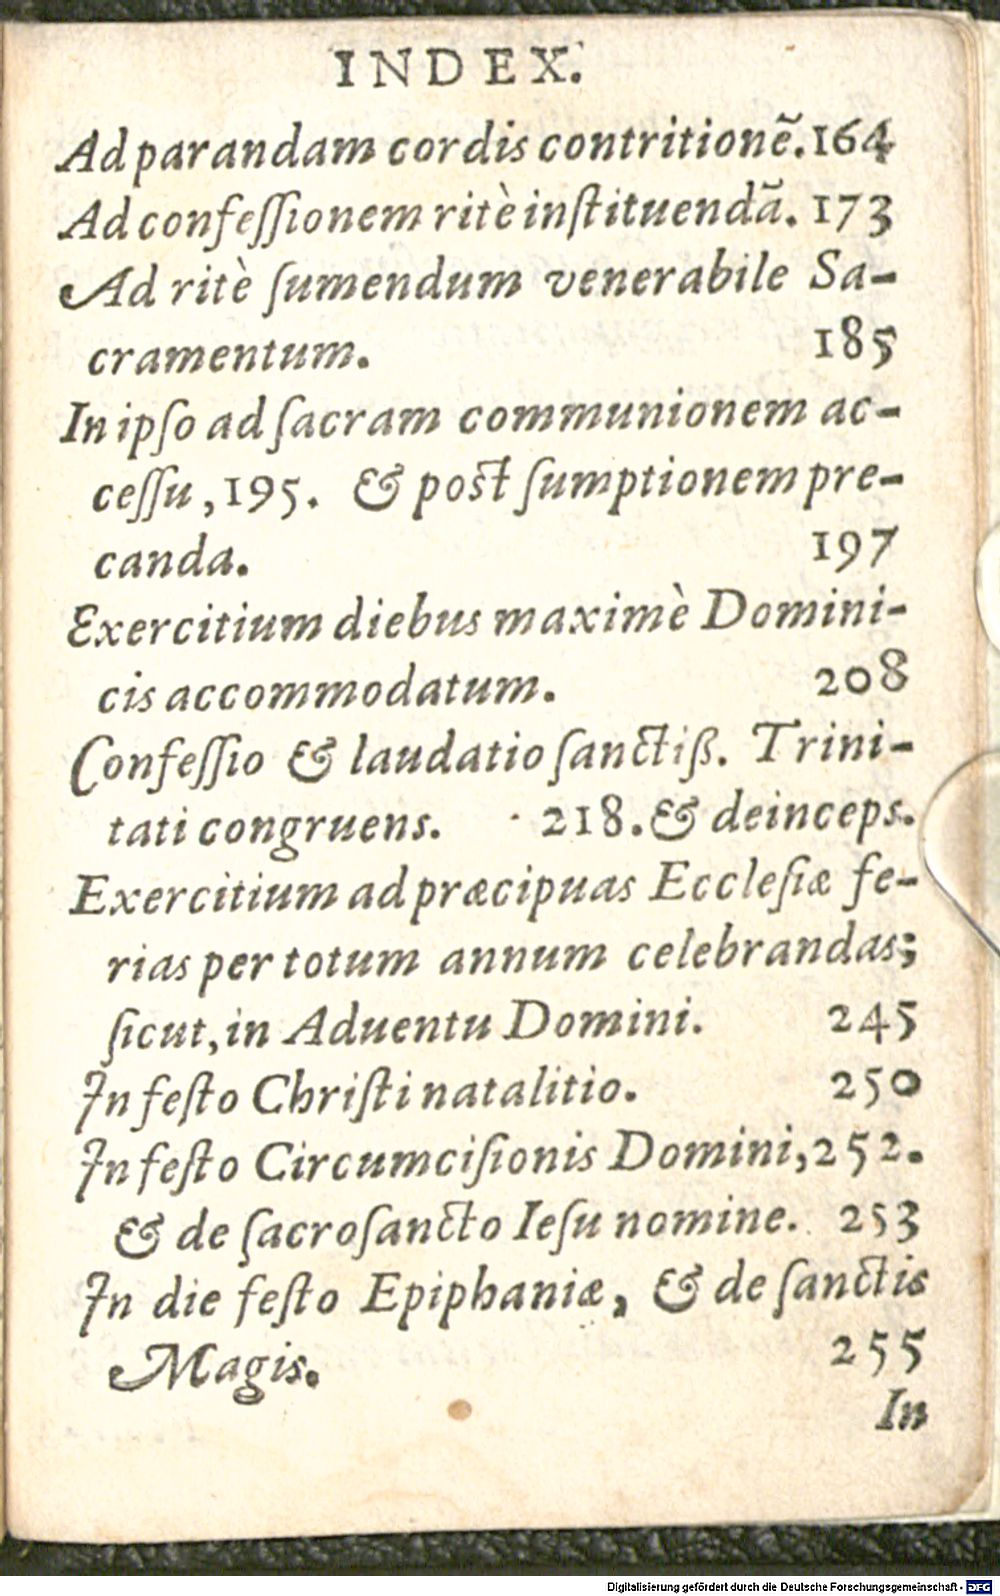 INDEX.
Ad parandam cordis contritionẽ. 164
Ad confeſſionem ritè inſtituendã. 173
Ad ritè ſumendum venerabile Sa-
cramentum. 185
In ipſo ad ſacram communionem ac-
ceſſu, 195. & poſt ſumptionem pre-
canda. 197
Exercitium diebus maximè Domini-
cis accommodatum. 208
Confeſſio & laudatio ſanctiß. Trini-
tati congruens. 218. & deinceps.
Exercitium ad præcipuas Eccleſiæ fe-
rias per totum annum celebrandas;
ſicut, in Aduentu Domini. 245
In feſto Chriſti natalitio. 250
In feſto Circumciſionis Domini, 252.
& de ſacroſancto Ieſu nomine. 253
In die feſto Epiphaniæ, & de ſanctis
Magis. 255
In
Digitalisierung gefördert durch die Deutsche Forschungsgemeinschaft - DFG